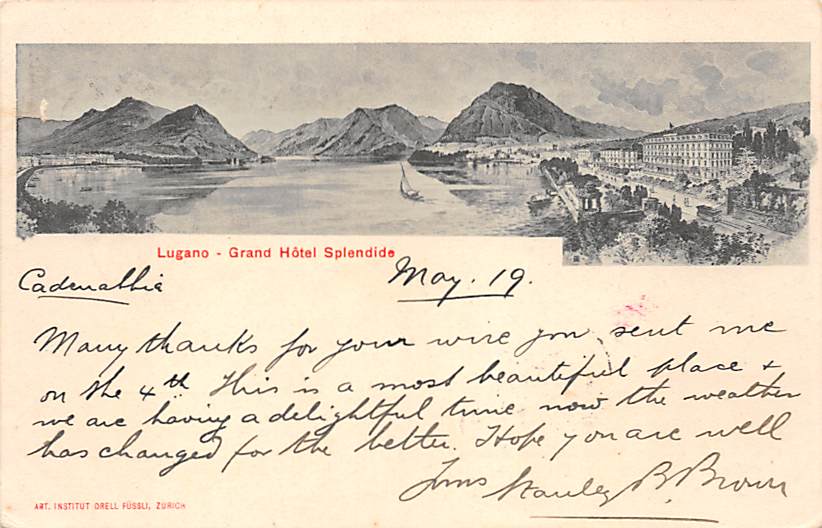 Lugano - Grand Hôtel Splendide
Cadenabbia May. 19.
Many thanks for your wire you sent me
on the 4th This is a most beautiful place +
we are having a delightful time now the weather
has changed for the better. Hope you are well
Yrs Stanley B. Brown
ART. INSTITUT ORELL FÜSSLI, ZÜRICH